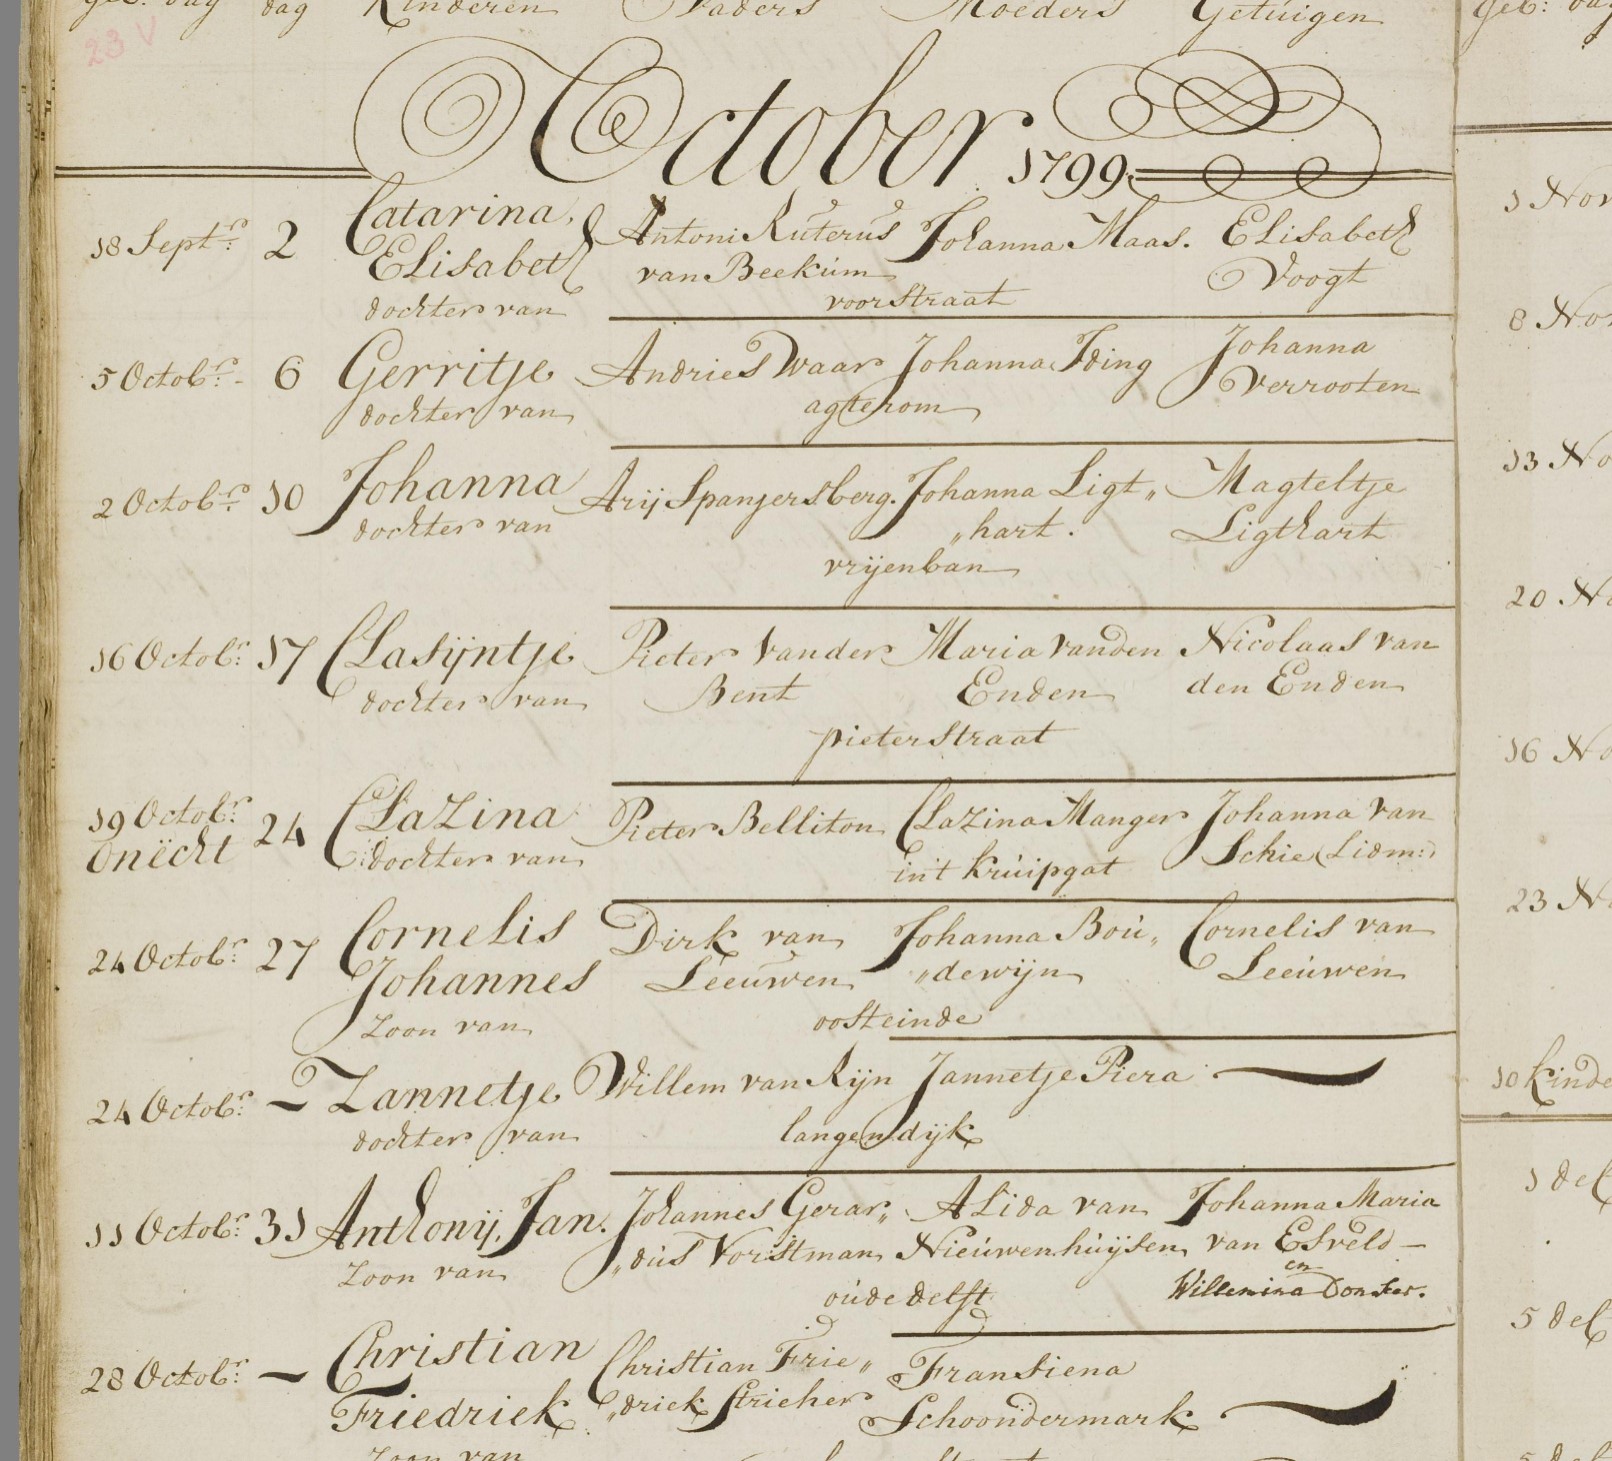 geb: dag dag Kinderen Vaders Moeders Getuigen
23 V
October 1799
18 Septr: 2 Catarina Antoni Ruterus Johanna Maas. Elisabeth
Elisabeth van Beekum Voogt
dochter van voorstraat
5 Octobr: 6 Gerritje Andries Dwaar Johanna Iding Johanna
dochter van agterom Verrooten
2 Octobr: 10 Johanna Arij Spanjersberg. Johanna Ligt„ Magteltje
dochter van „hart. Ligthart
vrijenban
16 Octobr: 17 Clasijntje Pieter Vander Maria vanden Nicolaas van
dochter van Bent Enden den Enden
pieterstraat
19 Octobr: 24 Clazina Pieter Belliton Clazina Manger Johanna van
Onëcht dochter van in't kruipgat Schie (Lidm:)
24 Octobr: 27 Cornelis Dirk van Johanna Bou„ Cornelis van
Johannes Leeuwen „dewijn Leeuwen
Zoon van oosteinde
24 Octobr: – Zannetje Willem van Rijn Jannetje Piera
dochter van langendijk
11 Octobr: 31 Anthonij, Jan. Johannes Gerar„ Alida van Johanna Maria
Zoon van „dus Vorstman Nieuwenhuijsen van Esveld –
en
oude delft Willemina Donker.
28 Octobr: – Christian Christian Frie„ Fransiena
Friedriek „driek Stricher Schoondermark
Zoon van
geb: dag
1 Nov
8 Nov
13 No
20 No
16 No
23 No
10 kinde
1 del
5 del